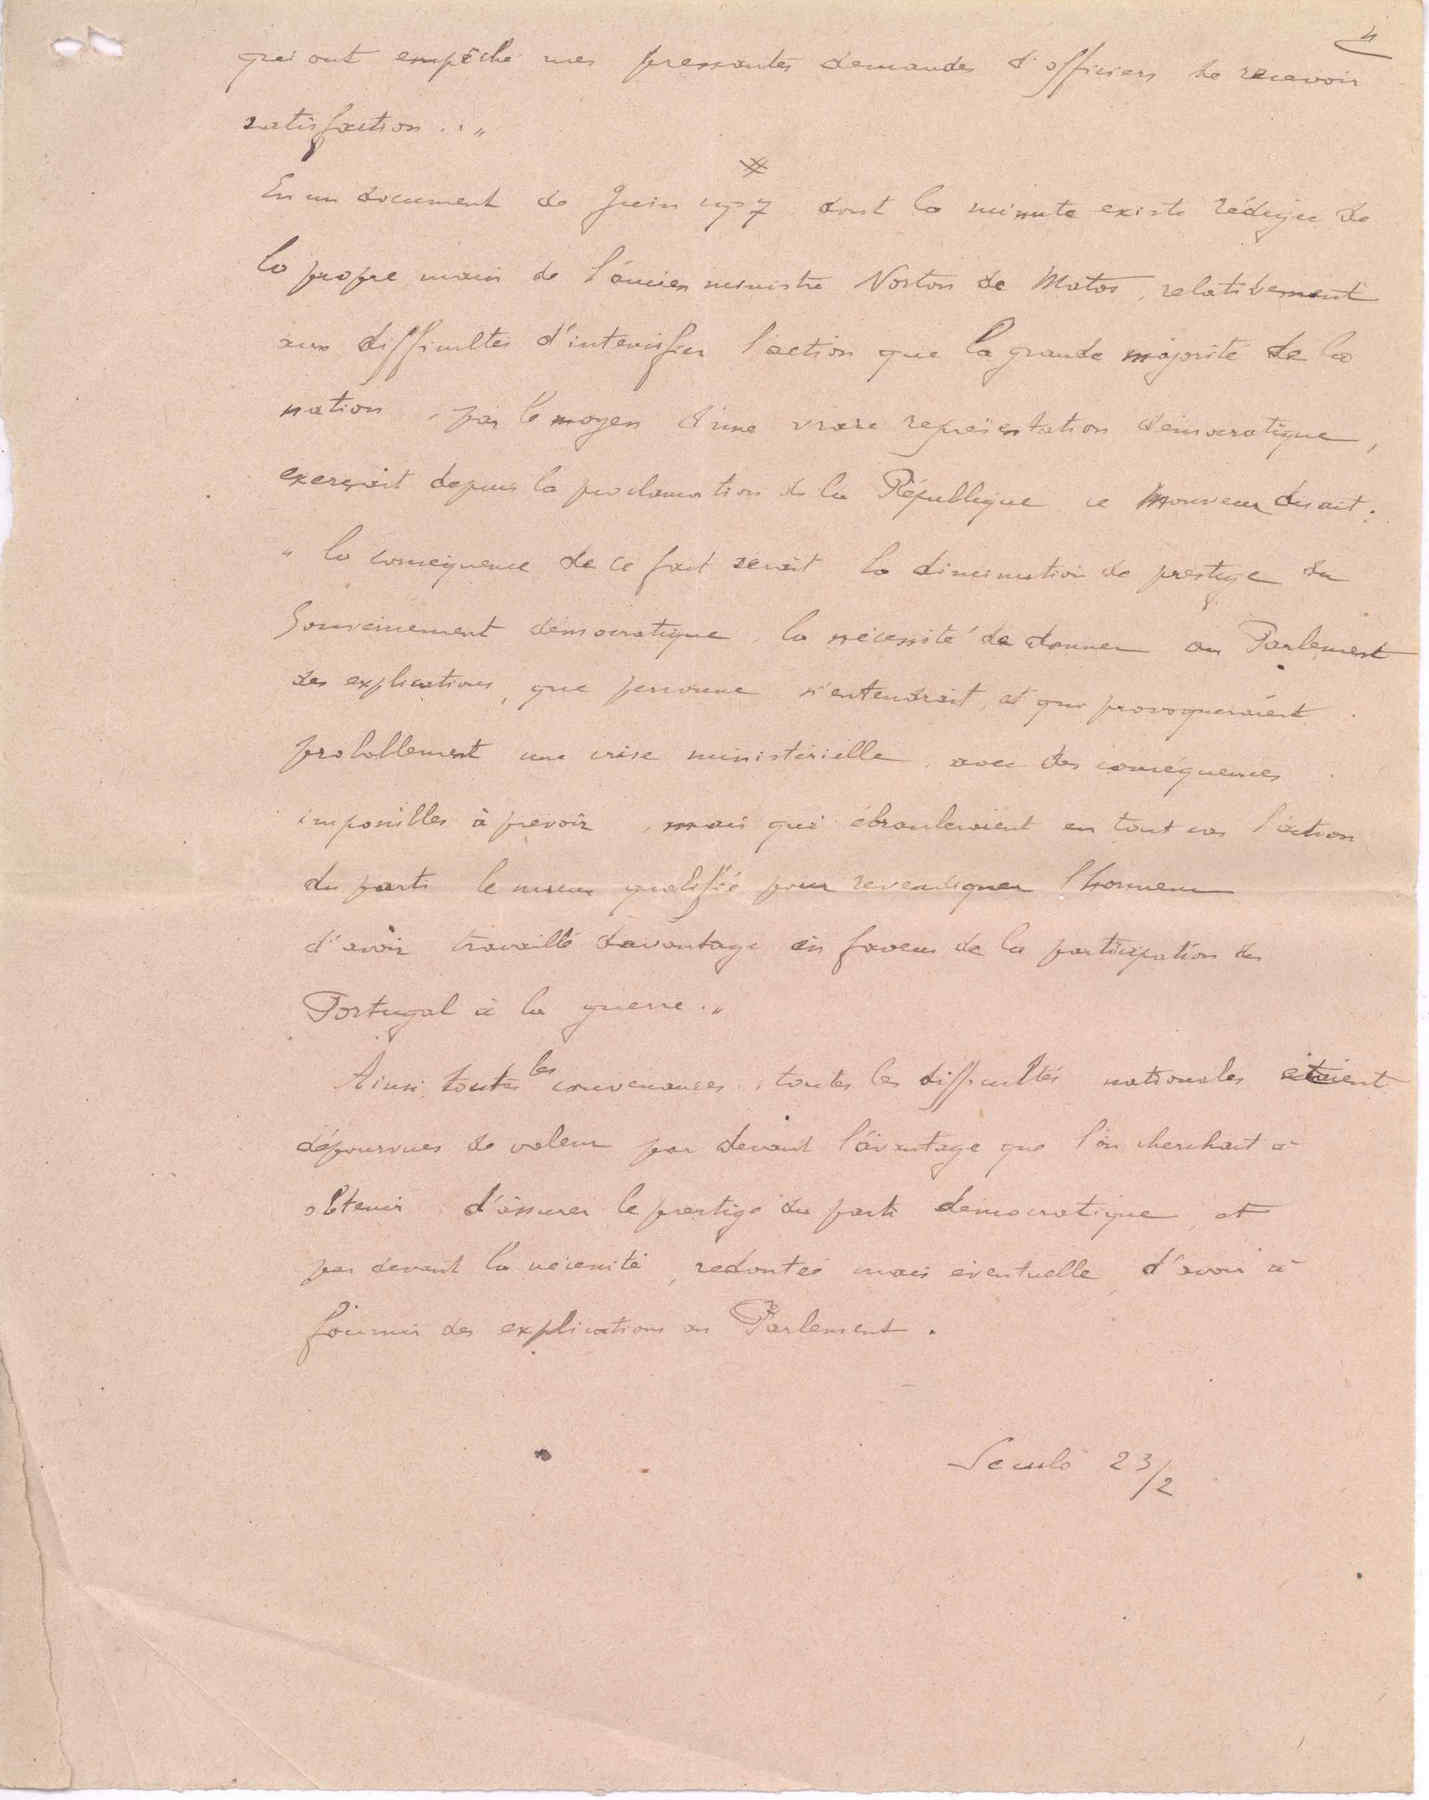 4
qui ont empêché mes pressantes demandes d'officiers de recevoir
satisfaction..."
En un document de Juin 1917 dont la minute existe rédigée de
la propre main de l'ancien ministre Norton de Matos, relativement
aux difficultés d'intensifier l'action que la grande majorité de la
nation, par le moyen d'une vraie représentation démocratique,
exerçait depuis la proclamation de la République ce Monsieur disait:
" la conséquence de ce fait serait la diminution de prestige du
Gouvernement démocratique, la nécessité de donner au Parlement
des explications, que personne n'entendrait, et que provoqueraient
probablement une crise ministérielle, avec des conséquences
impossibles à prevoir, mais qui ébranleraient en tout cas l'action
du parti le mieux qualifié pour revendiquer l'honneur
d'avoir travaillé davantage en faveur de la participation du
Portugal à la guerre."
Ainsi toutes les convenances, toutes les difficultés nationales étaient
dépourvues de valeur par devant l'avantage que l'on cherchait à
obtenir d'assurer le prestige du parti démocratique, et
par devant la nécessité, redoutée mais éventuelle, d'avoir à
fournir des explications au Parlement.
Seculo 23/2